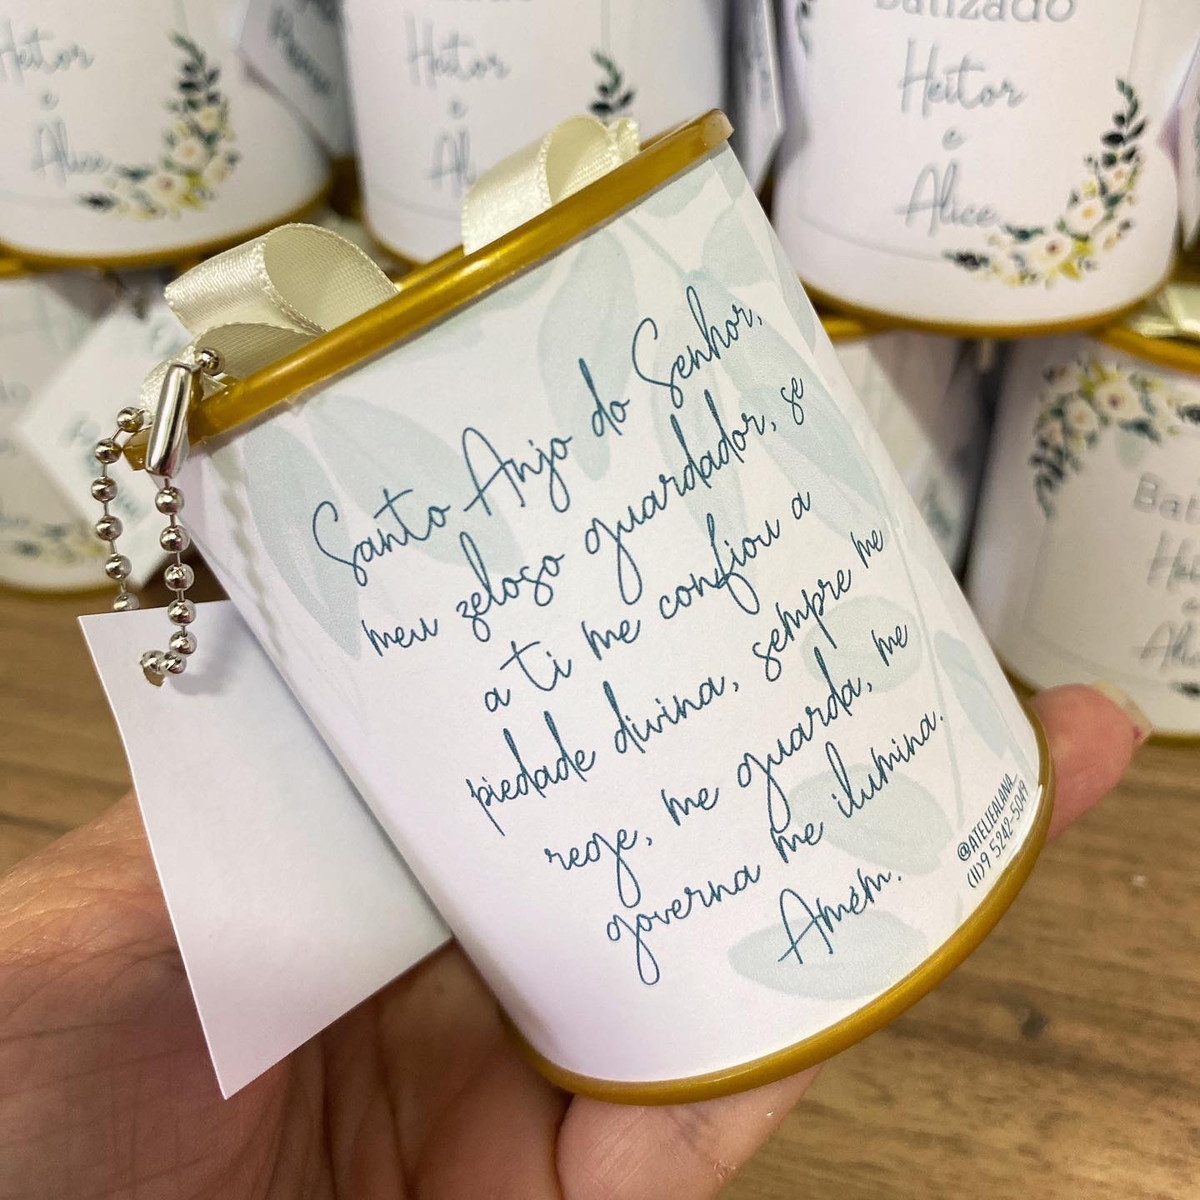 Heitor
e
Alice
Heitor
e
Batizado
Heitor
e
Alice
Santo Anjo do Senhor,
meu zeloso guardador, se
a ti me confiou a
piedade divina, sempre me
rege, me guarda, me
governa me ilumina.
Amém.
@ATELIEALANA_
(11)9 5242-5049